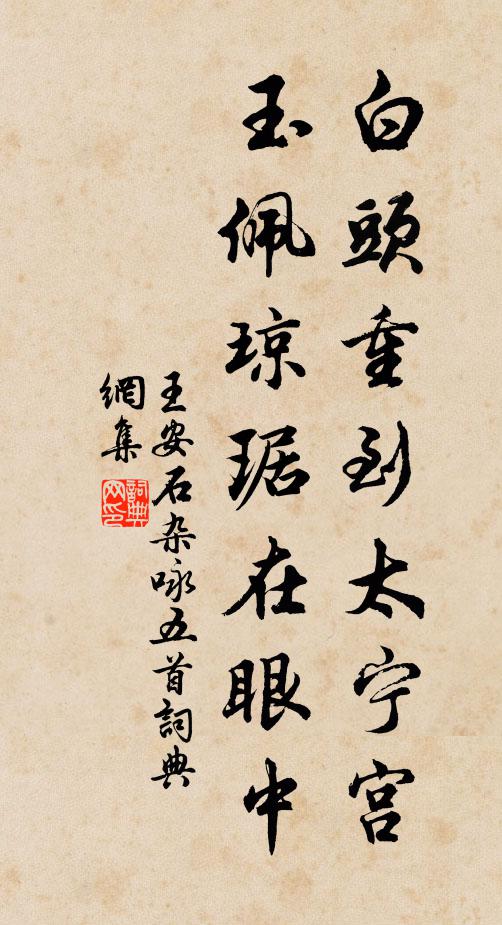 白頭重到太宁宫
玉佩琼琚在眼中
王安石杂咏五首詞典
網集
詞典
网印